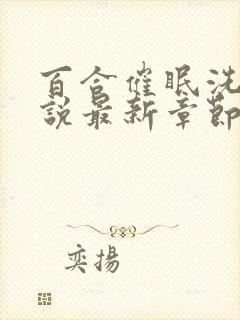 百合催眠洗
説最新章節
奕揚